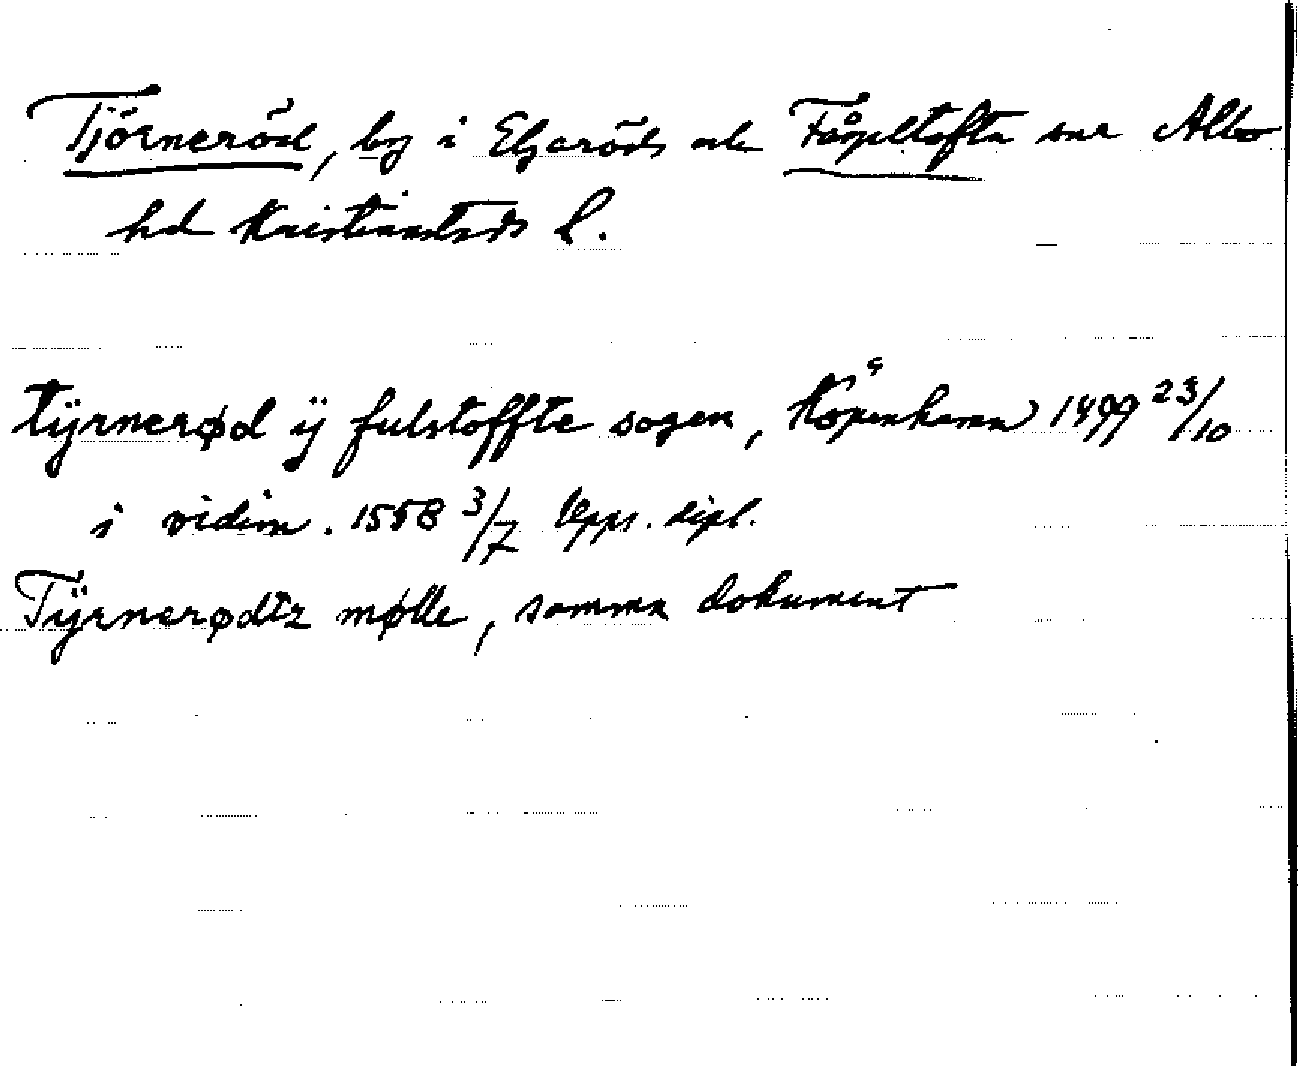 Tjörneröd, by i Eljaröds och Fågeltofta snr Albo
hd Kristianstads l.
tÿrnerød ÿ fulstoffte sogen, Köpenhamn 1499 23/10
i vidim. 1558 3/7 Upps. dipl.
Tÿrnerødtz mølle, samma dokument